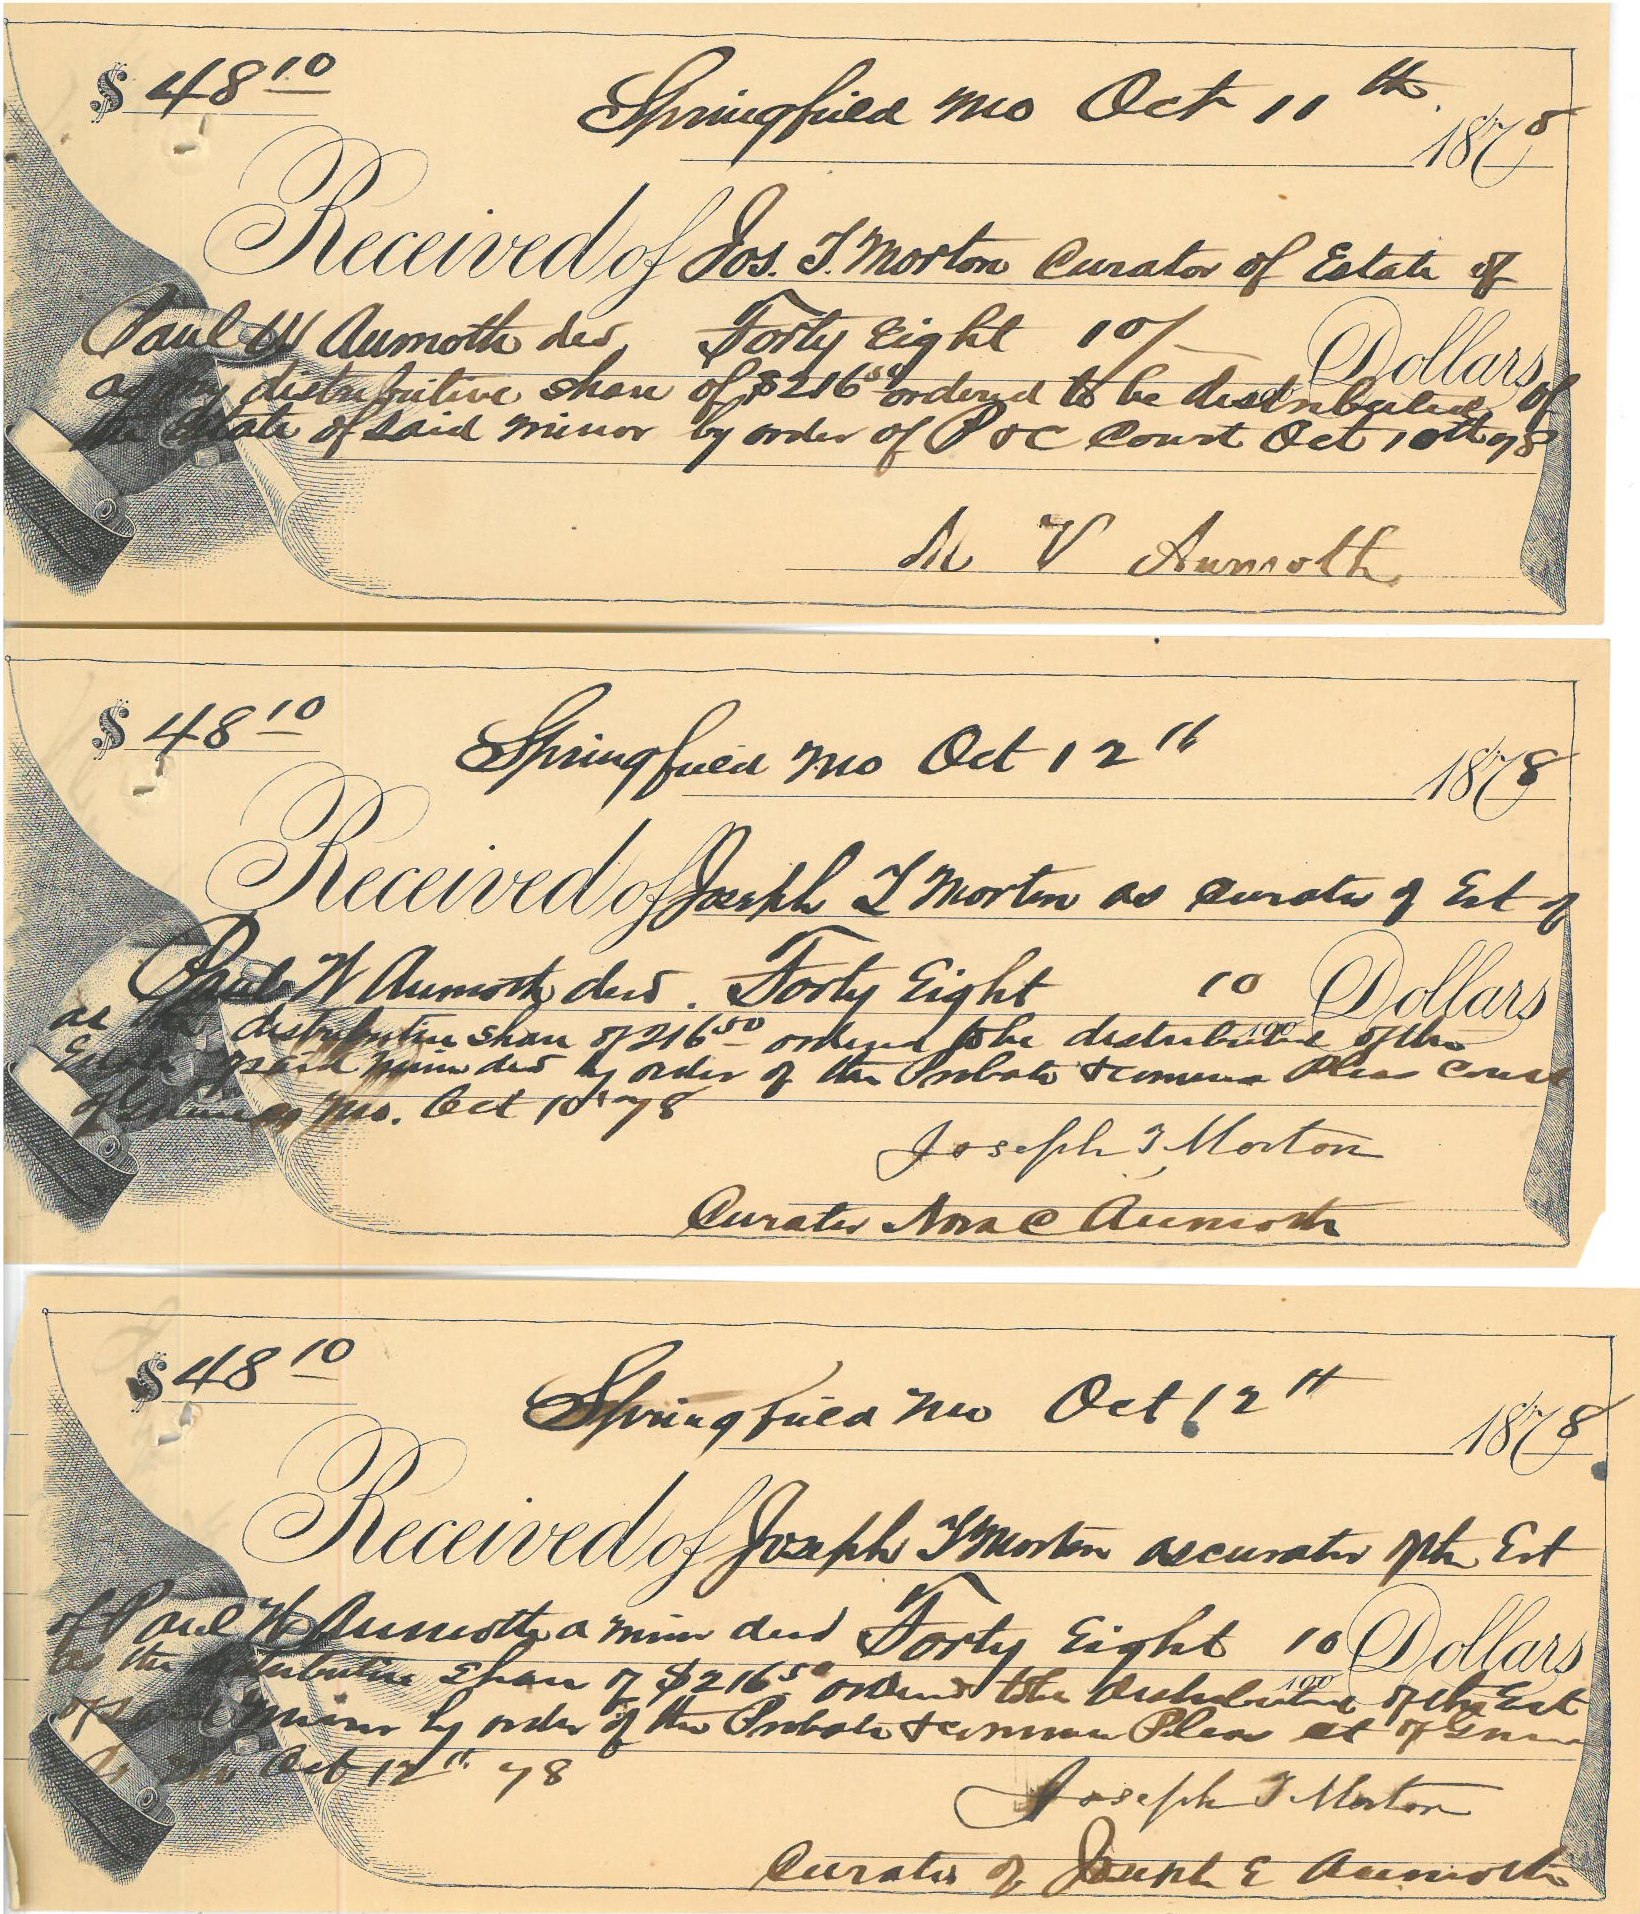 $ 48 10
Springfield Mo Oct 11th 1878
Received of Jos. T. Morton Curator of Estate of
Paul W Aumoth decd, Forty Eight 10/ Dollars
as my distributive share of $216 50 ordered to be distributed of
the Estate of said minor by order of P & C Court Oct 10th 78
M V Aumoth
$ 48 10
Springfield Mo Oct 12th 1878
Received of Joseph T Morton as Curator of Est of
Paul W Aumoth decd. Forty Eight 10 Dollars
100
as the distributive share of 216 50 ordered to be distributed of the
Estate of said minor decd by order of the Probate & Common Pleas Court
of Mo. Oct 10th 78
Joseph T Morton
Curator Nora C Aumoth
$ 48 10
Springfield Mo Oct 12th 1878
Received of Joseph T Morton as curator of the Est
of Paul W Aumoth a minor decd Forty Eight 10 Dollars
100
as the distributive share of $216 50 ordered to be distributed of the Est
of said minor by order of the Probate & Common Pleas ct of
Oct 12th 78
Joseph T Morton
Curator of Joseph E Aumoth